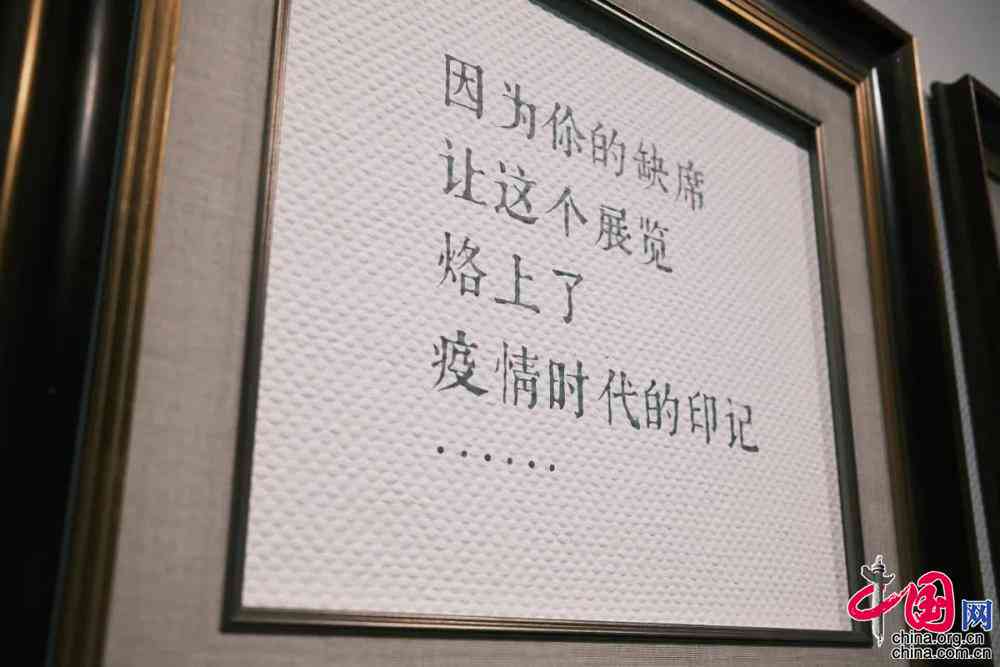 因为你的缺席
让这个展览
烙上了
疫情时代的印记
······
中国网
china.org.cn
china.com.cn